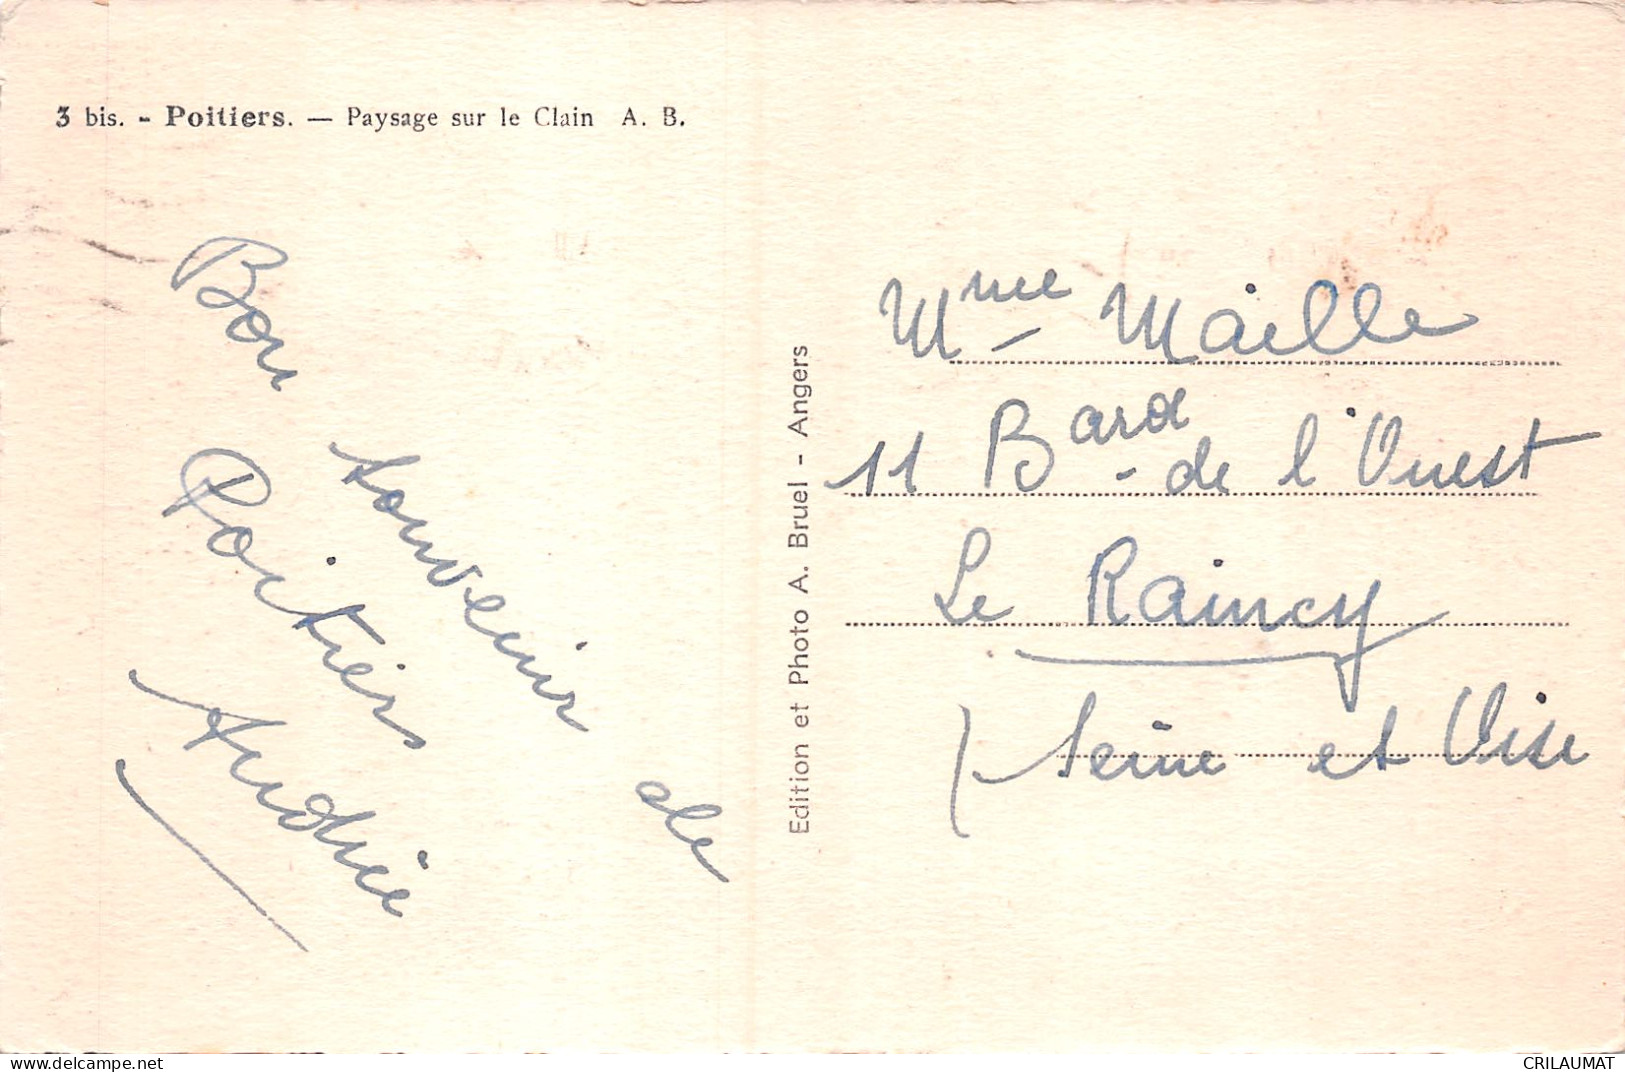 3 bis. - Poitiers. — Paysage sur le Clain A. B.
Bon souvenir de
Poitiers
Edition et Photo A. Bruel - Angers
Mme Maille
11 Bard de l'Ouest
Le Raincy
Seine et Oise
www.delcampe.net
CRILAUMAT